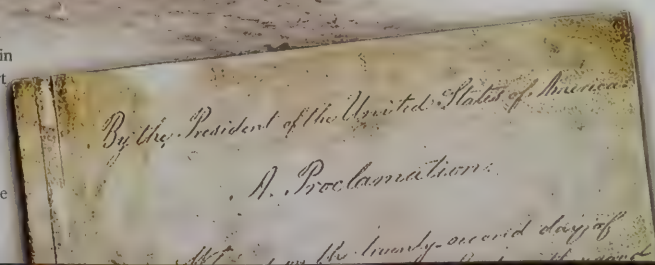 in
By the President of the United States of America.
A Proclamation.
on the twenty-second day of
e